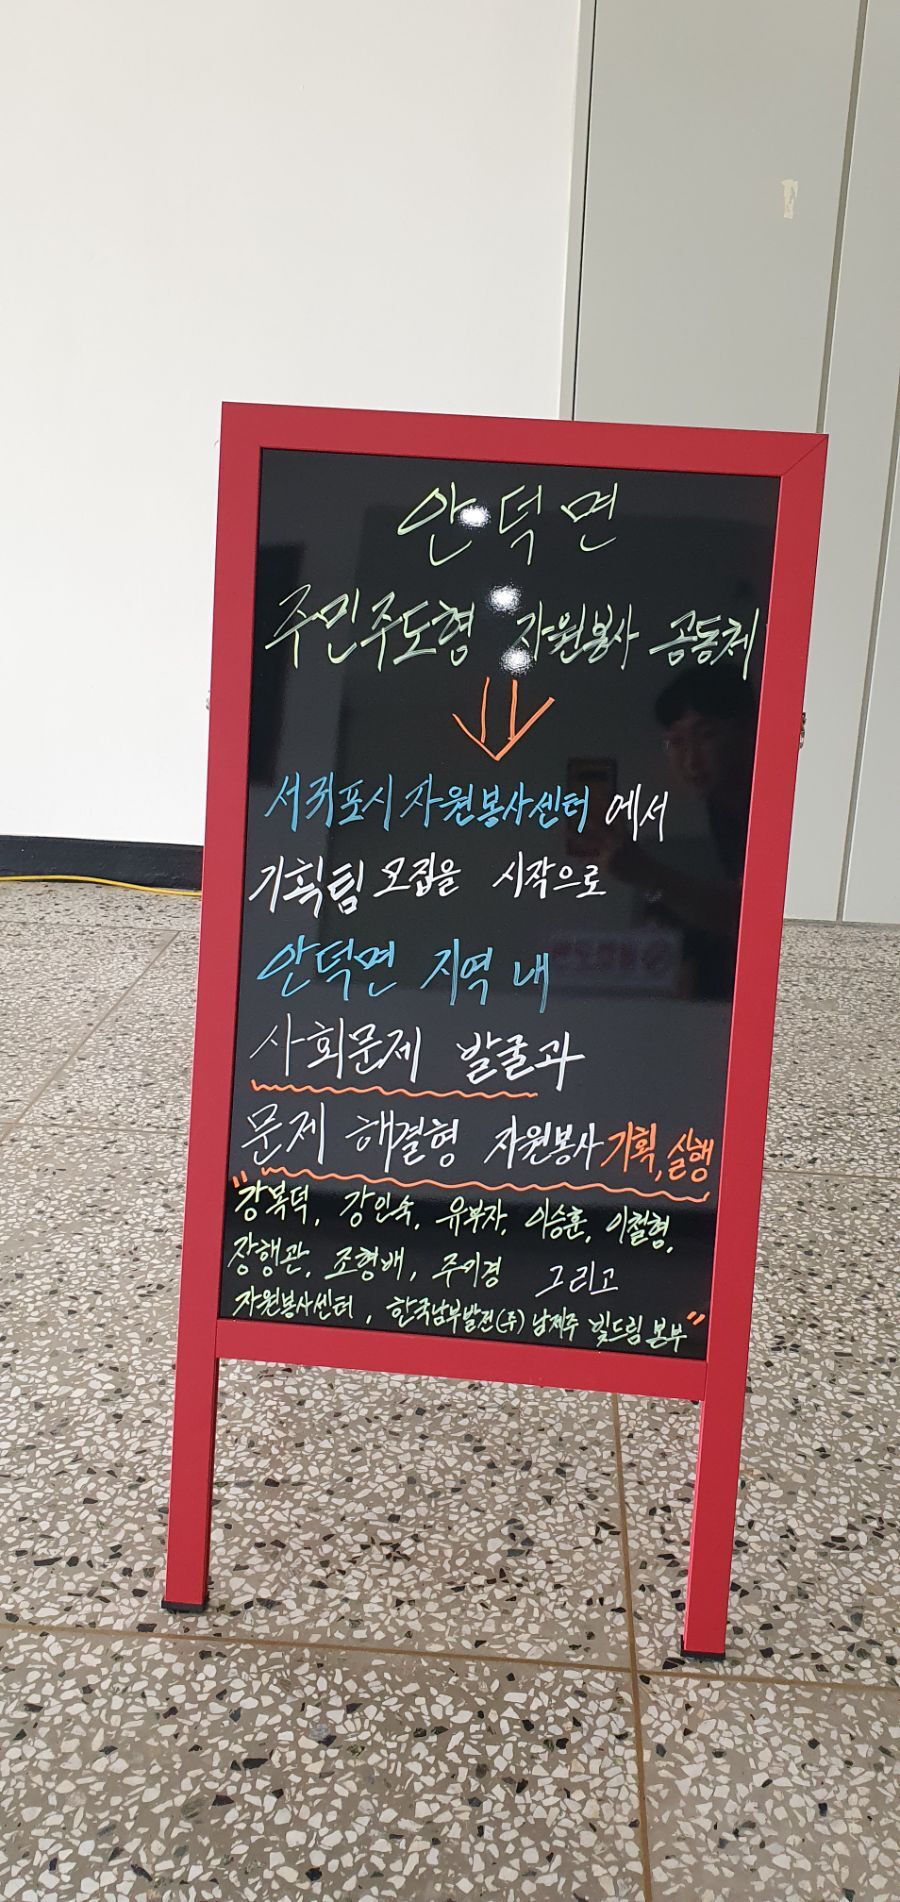 안덕면
주민주도형 자원봉사 공동체
서귀포시자원봉사센터 에서
기획팀 모집을 시작으로
안덕면 지역 내
사회문제 발굴과
문제 해결형 자원봉사 기획, 실행
"강복덕, 강인숙, 유부자, 이승훈, 이철형,
장행관, 조형배, 주미경 그리고
자원봉사센터, 한국남부발전(주) 남제주 빛드림 본부"